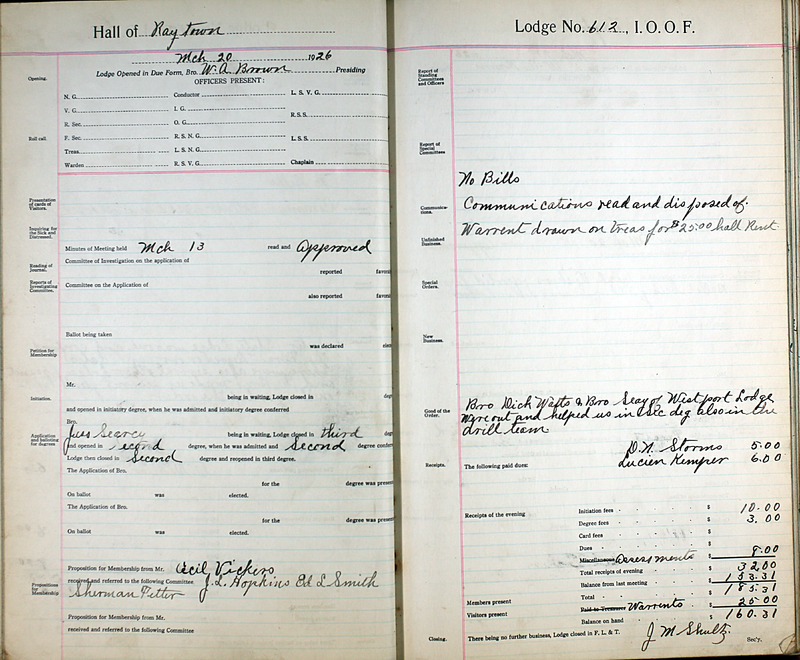 Hall of Raytown
Mch 20 1926
Lodge Opened in Due Form, Bro. W. A. Brown Presiding
OFFICERS PRESENT:
Opening.
N. G. Conductor L. S. V. G.
V. G. I. G.
R. Sec. O. G. R.S.S.
Roll call.
F. Sec. R. S. N. G. L.S.S.
Treas. L. S. N. G.
Warden R. S. V. G. Chaplain
Presentation of cards of Visitors.
Inquiring for the Sick and Distressed.
Minutes of Meeting held Mch 13 read and Approved
Reading of Journal.
Committee of Investigation on the application of
reported favor
Reports of Investigating Committee.
Committee on the Application of
also reported favor
Ballot being taken
was declared elec
Petition for Membership
Mr.
Initiation.
being in waiting, Lodge closed in deg
and opened in initiatory degree, when he was admitted and initiatory degree conferred
Bro.
Application and balloting for degrees.
Jues Searcy being in waiting, Lodge closed in third deg
and opened in second degree, when he was admitted and second degree confer
Lodge then closed in second degree and reopened in third degree.
The Application of Bro.
for the degree was presen
On ballot was elected.
The Application of Bro.
for the degree was presen
On ballot was elected.
Proposition for Membership from Mr. Cecil Vickers
Propositions for Membership
received and referred to the following Committee J. L. Hopkins Ed L Smith
Sherman Fetter
Proposition for Membership from Mr.
received and referred to the following Committee
Lodge No. 612, I. O. O. F.
Report of Standing Committees and Officers
Report of Special Committees
No Bills
Communications.
Communications read and disposed of.
Warrent drawn on treas for $25.00 hall Rent
Unfinished Business.
Special Orders.
New Business.
Good of the Order.
Bro Dick Watts & Bro Seay of Westport Lodge
were out and helped us in sec deg also in the
drill team
D. N. Storms 5.00
Receipts. The following paid dues: Lucien Kemper 6.00
Receipts of the evening Initiation fees $ 10.00
Degree fees $ 3.00
Card fees $
Dues $
Miscellaneous Assessments $ 8.00
Total receipts of evening $ 32.00
Balance from last meeting $ 153.31
Total $ 185.31
Members present
Paid to Treasurer Warrents $ 25.00
Visitors present
Balance on hand $ 160.31
Closing. There being no further business, Lodge closed in F. L. & T. J M Shultz. Sec'y.